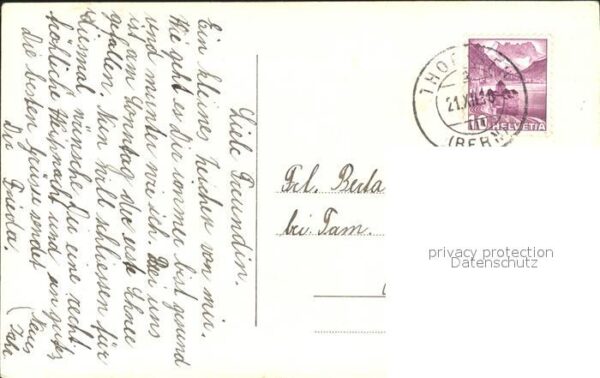 Liebe Freundin.
Ein kleines Zeichen von mir.
Wie geht es Dir immer bist gesund
und munter wie ich. Bei uns
ist am Sonntag der erste Schnee
gefallen. Nun will schliessen für
diesmal wünsche Dir eine recht
fröhliche Weihnacht und ein gutes
Neues
Jahr.
Die besten Grüsse sendet
Dir
Frieda.
21.XII.
(BERN
10 HELVETIA
Frl. Berta
bei. Fam.
privacy protection
Datenschutz